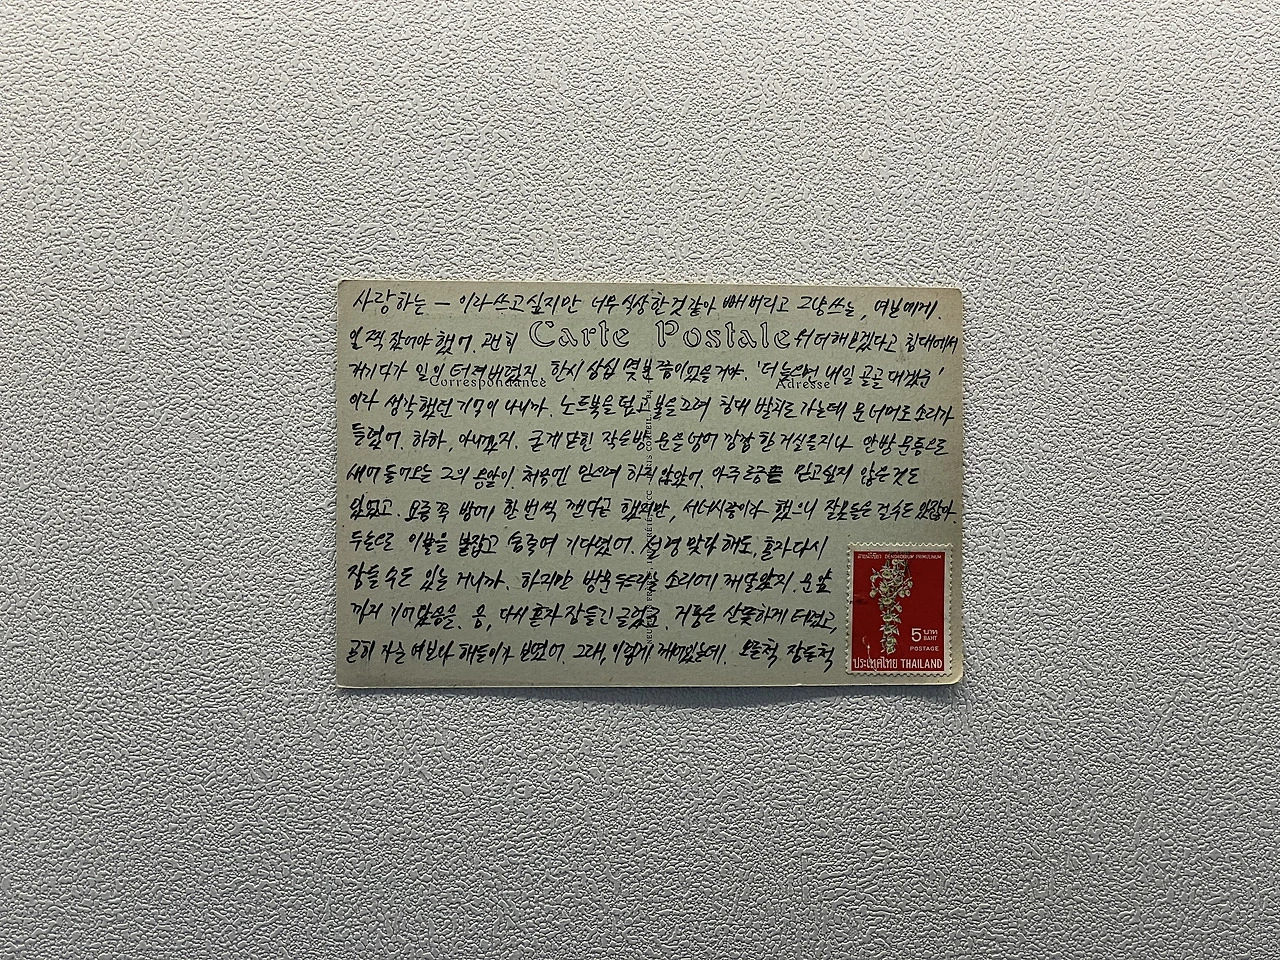 사랑하는 — 이라 쓰고 싶지만 너무 식상한 것 같아 빼버리고 그냥 쓰는, 여보에게.
일찍 잤어야 했어. 괜히 Carte Postale 뒤더해보겠다고 침대에서
Correspondance Adresse
거기다가 일이 터져버렸지. 한시 삼십 몇 분쯤이었을거야. '더 늦으면 내일 골골대겠군'
이라 생각했던 기억이 나니까. 노트북을 덮고 불을 끄려 침대 발치로 가는데 문 너머로 소리가
들렸어. 하하, 아니겠지. 굳게 닫힌 작은방 문을 넘어 깜깜한 거실을 지나 안방 문틈으로
새어 들어오는 그의 음악이. 처음엔 믿으려 하지 않았어. 아주 조금쯤 믿고싶지 않은 것도
있었고. 요즘 꼭 밤에 한 번씩 깬다곤 했지만, 잘못들은 걸수도 있잖아
두 손으로 이불을 붙잡고 숨죽여 기다렸어. 설령 맞다 해도, 혼자 다시
잠들 수도 있는 거니까. 하지만 방문 두드리는 소리에 깨달았지. 문 앞
까지 기어왔음을. 응, 다시 혼자 잠들긴 글렀고. 거품은 산뜻하게 터졌고,
곤히 자는 여보나 해들이가 보였어. 그래, 이렇게 깨어있는데. 모른척 잠든척
5 บาท
BAHT
POSTAGE
ประเทศไทย THAILAND
DENDROBIUM PRIMULINUM